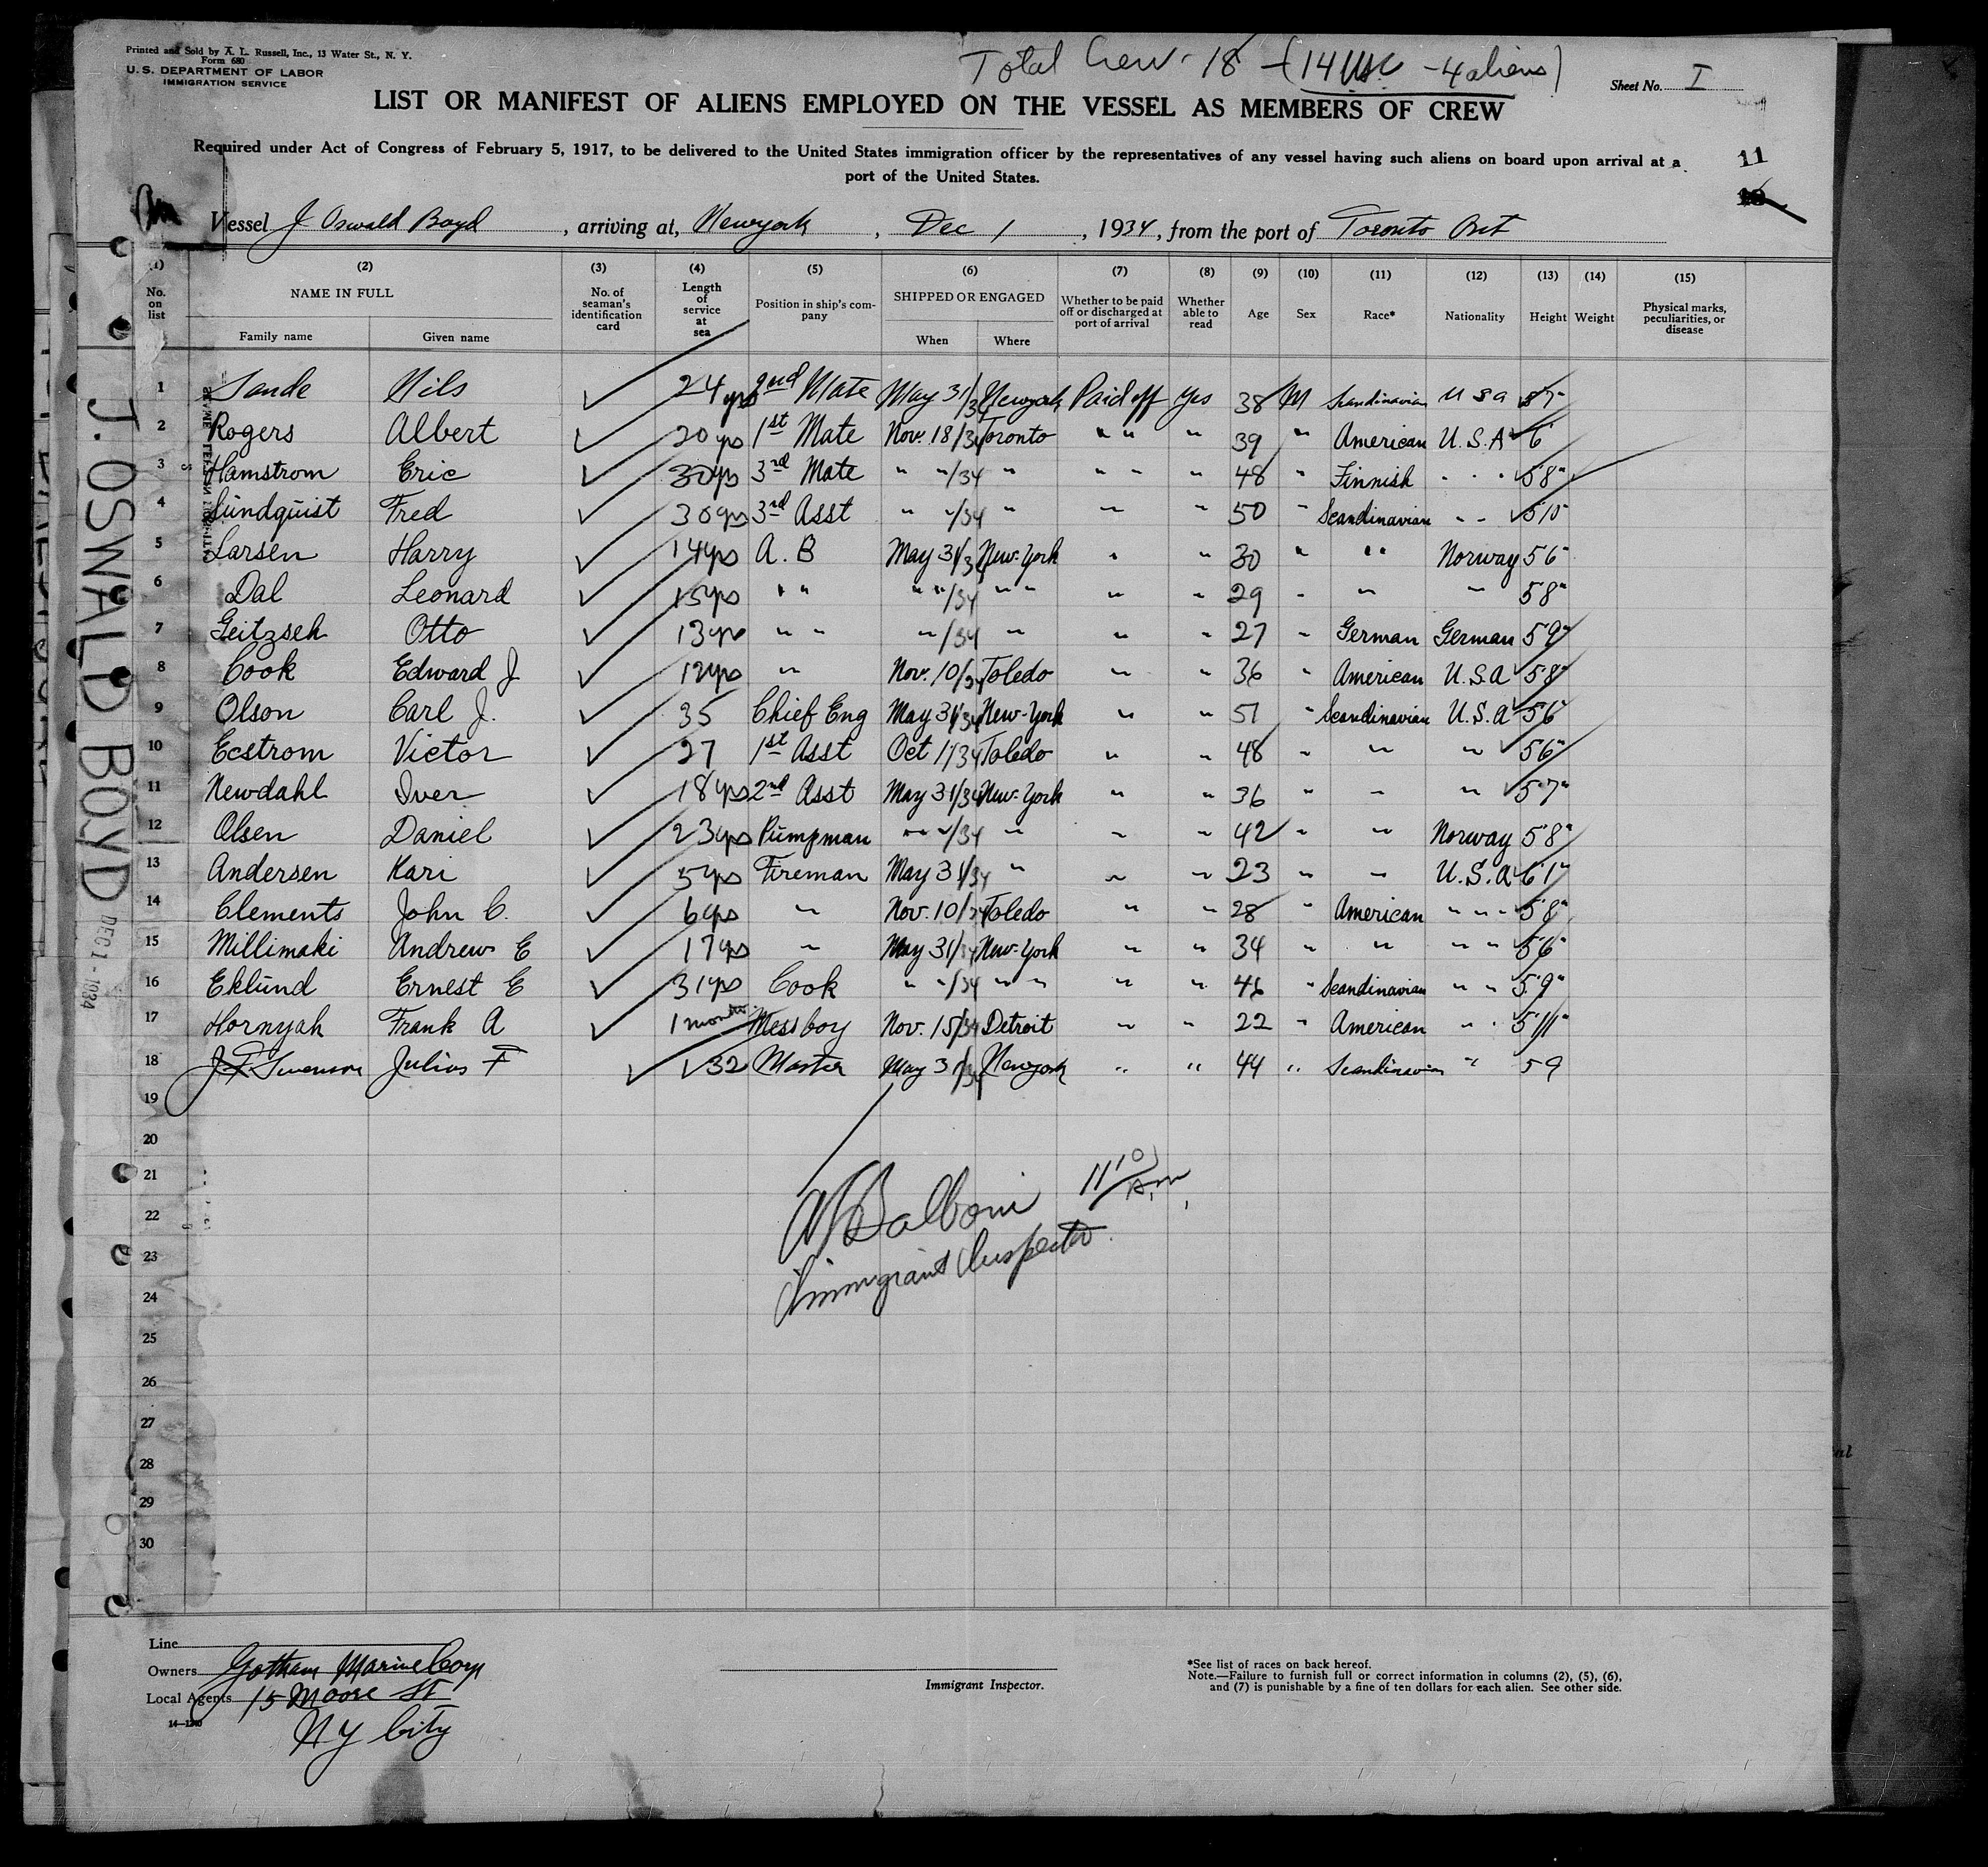 Printed and Sold by A. L. Russell, Inc., 13 Water St., N. Y.
Form 680
U. S. DEPARTMENT OF LABOR
IMMIGRATION SERVICE
Total Crew - 18 - (14 USC - 4 aliens)
Sheet No. I
LIST OR MANIFEST OF ALIENS EMPLOYED ON THE VESSEL AS MEMBERS OF CREW
Required under Act of Congress of February 5, 1917, to be delivered to the United States immigration officer by the representatives of any vessel having such aliens on board upon arrival at a
port of the United States.
11
Vessel J Oswald Boyd, arriving at, Newyork, Dec 1, 1934, from the port of Toronto Ont
(1) (2) (3) (4) (5) (6) (7) (8) (9) (10) (11) (12) (13) (14) (15)
No. on list NAME IN FULL Family name Given name No. of seaman's identification card Length of service at sea Position in ship's company SHIPPED OR ENGAGED When Where Whether to be paid off or discharged at port of arrival Whether able to read Age Sex Race* Nationality Height Weight Physical marks, peculiarities, or disease
1 Sande Nils ✓ 24 yrs 2nd Mate May 31/34 Newyork Paid off Yes 38 M Scandinavian U S a 5 7"
2 Rogers Albert ✓ 20 yrs 1st Mate Nov. 18/34 Toronto " " " 39 " American U.S.A ✓ 6'
3 Hamstrom Eric ✓ 30yrs 3rd Mate " "/34 " " " " 48 " Finnish " " " ✓ 5 8"
4 Sundquist Fred ✓ 30yrs 3rd Asst " "/34 " " " 50 " Scandinavian " " ✓ 5'10"
5 Larsen Harry ✓ 14yrs A. B May 31/34 New-York " " 30 " " Norway 5 6"
6 Dal Leonard ✓ 15yrs " " " "/34 " " " " 29 " " " 5 8"
7 Geitzseh Otto ✓ 13yrs " " "/34 " " " 27 " German German 5 9"
8 Cook Edward J ✓ 12yrs " Nov. 10/34 Toledo " " 36 " American U.S.a ✓ 5 8"
9 Olson Carl J. ✓ 35 Chief Eng May 31/34 New-York " " 51 " Scandinavian U.S.a ✓ 5 6"
10 Ecstrom Victor ✓ 27 1st Asst Oct 1/34 Toledo " " 48 " " " ✓ 5 6"
11 Newdahl Iver ✓ 18yrs 2nd Asst May 31/34 New-York " " 36 " " " ✓ 5'7"
12 Olsen Daniel ✓ 23yrs Pumpman " "/34 " " " 42 " " Norway 5'8"
13 Andersen Kari ✓ 5yrs Fireman May 31/34 " " " 23 " " U.S.a ✓ 6'1"
14 Clements John C. ✓ 6yrs " Nov. 10/34 Toledo " " 28 " American " " " ✓ 5'8"
15 Millimaki Andrew E ✓ 17yrs " May 31/34 New-York " " 34 " " " " ✓ 5'6"
16 Eklund Ernest E ✓ 31yrs Cook " "/34 " " " " 46 " Scandinavian " " ✓ 5'9"
17 Hornyak Frank A ✓ 1 month Messboy Nov. 15/34 Detroit " " 22 " American " " 5'11"
18 J F Swenson Julius F ✓ ✓ 32 Master May 31/34 Newyork " " 44 " Scandinavian " 5 9
19
20
21
22
23
24
25
26
27
28
29
30
Balboni 11 10 A.m.
Immigrant Inspector.
J. OSWALD BOYD
DEC 1 - 1934
Line
Owners Gotham Marine Corp
Local Agents 15 Moore St
N Y City
14—1240
Immigrant Inspector.
*See list of races on back hereof.
Note.—Failure to furnish full or correct information in columns (2), (5), (6),
and (7) is punishable by a fine of ten dollars for each alien. See other side.